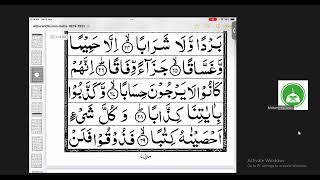 بَرْدًا وَّلَا شَرَابًا ﴿۲۴﴾ اِلَّا حَمِيْمًا
وَّغَسَّاقًا ﴿۲۵﴾ جَزَآءً وِّفَاقًا ﴿۲۶﴾ اِنَّهُمْ
كَانُوْا لَا يَرْجُوْنَ حِسَابًا ﴿۲۷﴾ وَّكَذَّبُوْا
بِاٰيٰتِنَا كِذَّابًا ﴿۲۸﴾ وَكُلَّ شَیْءٍ
اَحْصَيْنٰهُ كِتٰبًا ﴿۲۹﴾ فَذُوْقُوْا فَلَنْ
Activate Windows
Go to PC settings to activate Windows.